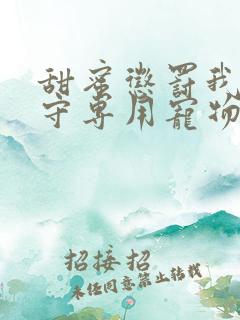 甜蜜惩罚我
守专用宠物
招接招
未经同意禁止转载